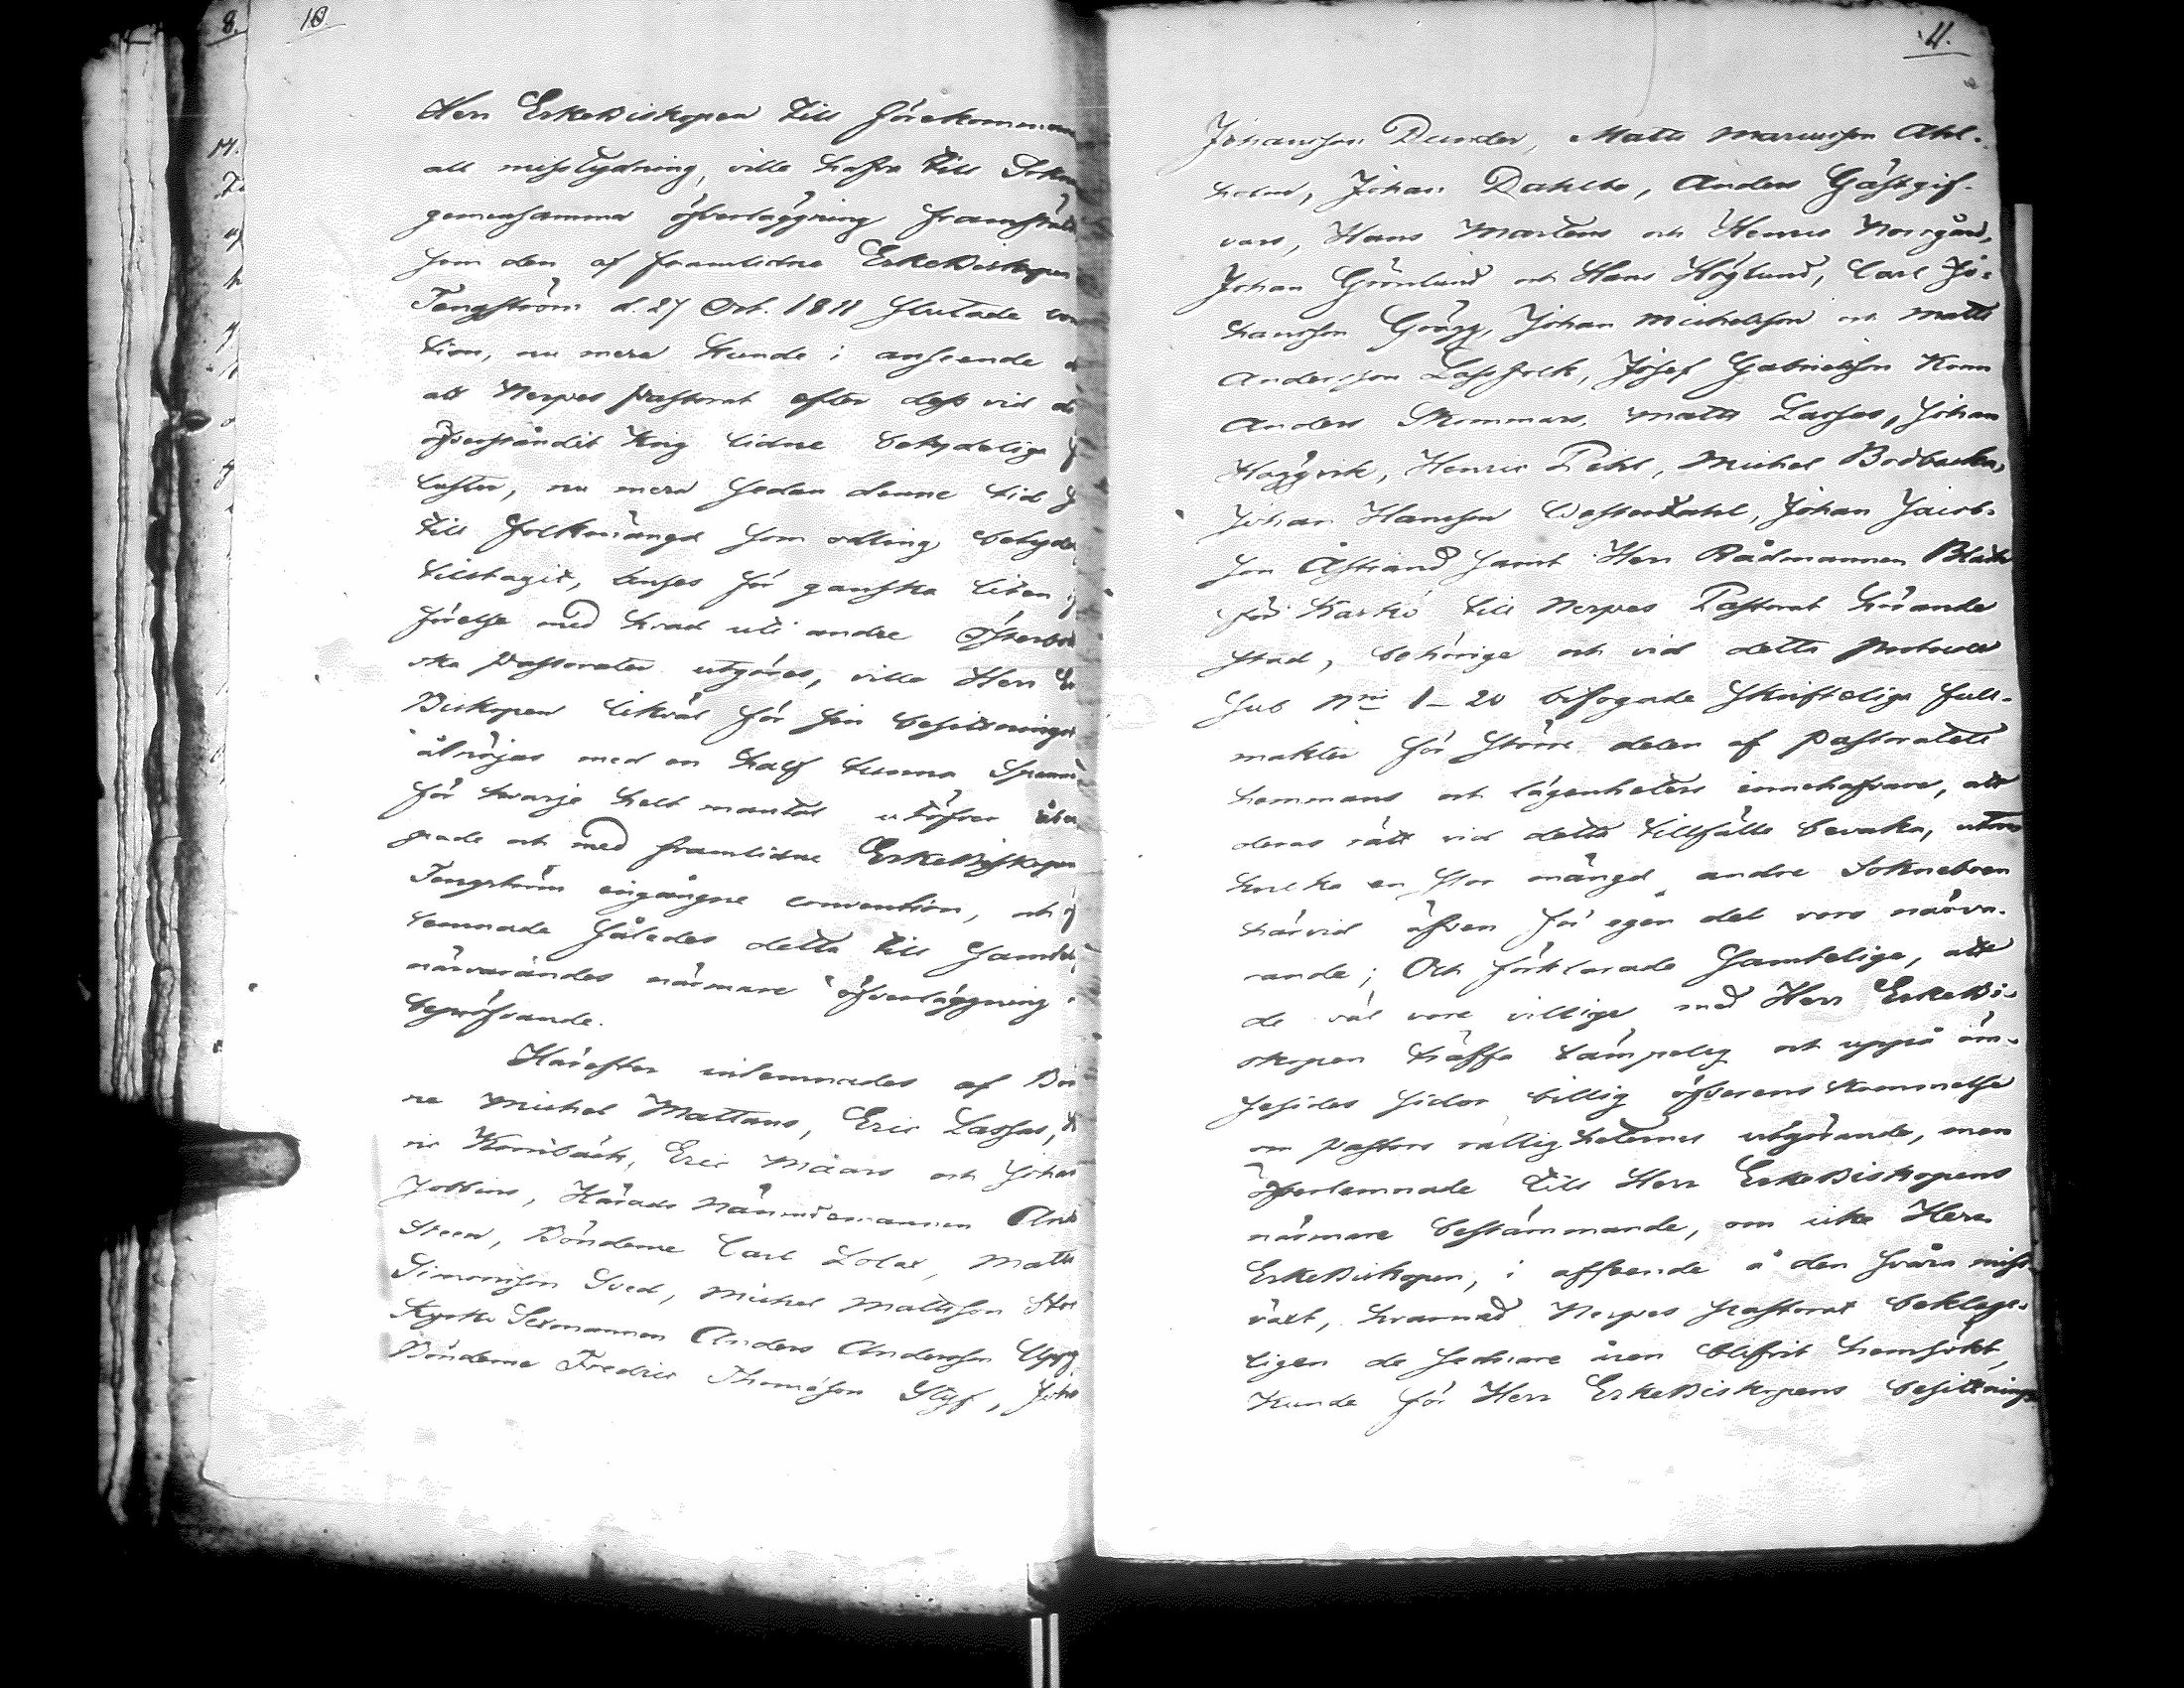 8.
10.
Herr ErkeBiskopen till förekommande
all misstydning, ville hafva till Sokne
gemensamma öfverläggning framstält
som den af framlidne ErkeBiskopen
Tengström d. 27 Oct. 1811 slutade
tion, nu mera kunde i anseende
att Nerpes Pastorat efter dess vid
öfverståndit krig lidne betydelige
luster, nu mera sedan denne tid
till folkmängd som odling betyde
tilltagit, anses för ganska liten
förelse med hvad uti andre Österbott
ska Pastorater utgöres, ville Herr Erke
Biskopen likväl för sin besittnings
åtnöjas med en half tunna Spanmål
för hvarje helt mantal utöfver
rade och med framlidne ErkeBiskopen
Tengström ingångne convention, och
lemnade således detta till samtel
närvarandes närmare öfverläggning
bepröfvande.
Härefter inlemnades af Bön
ne Michel Mattans, Eric Lassas,
ric Kornbäck, Eric Måars och Johan
Jossfins, Härads Nämndemannen And
Steen, Bönderne Carl Lolax, Matts
Simonsson Sved, Michel Mattsson Stor
Kyrko Sexmannen Anders Andersson Uppg
Bönderne Fredric Thomasson Styf, Joha
11.
Johansson Dunder, Matts Marcusson Ahl-
holm, Johan Dahlbo, Anders Gästgif-
vars, Hans Martens och Henric Norrgård,
Johan Grönlund och Hans Höglund, Carl Jo-
hansson Grägg, Johan Michelsson och Matts
Andersson Lassfolk, Josef Gabrielsson Krom
Anders Skommars, Matts Lassas, Johan
Häggvik, Henric Pehl, Michel Bodbacka,
Johan Hansson Westerdahl, Johan Jacob-
son Åstrand samt Herr Rådmannen Bladh
för Kaskö till Nerpes Pastorat hörande
stad, behörige och vid detta Protocoll
sub N:ris 1-20 bifogade skriftelige full-
makter för större delen af Pastoratets
hemmans och lägenheters innehafvare, att
deras rätt vid detta tillfälle bevaka, utom
hvilka en stor mängd andre Sokneboer
härvid äfven för egen del voro närva-
rande; Och förklarade samtelige, att
de väl vore villige med Herr ErkeBi-
skopen träffa lämpelig och uppå öm-
sesides sidor billig öfverenskommelse
om Pastors rättigheternes utgörande, men
öfverlemnade till Herr ErkeBiskopens
närmare bestämmande, om icke Herr
ErkeBiskopen, i afseende å den svåra miss-
växt, hvarmed Nerpes Pastorat beklage-
ligen de sednare åren blifvit hemsökt,
kunde för Herr ErkeBiskopens besittnings